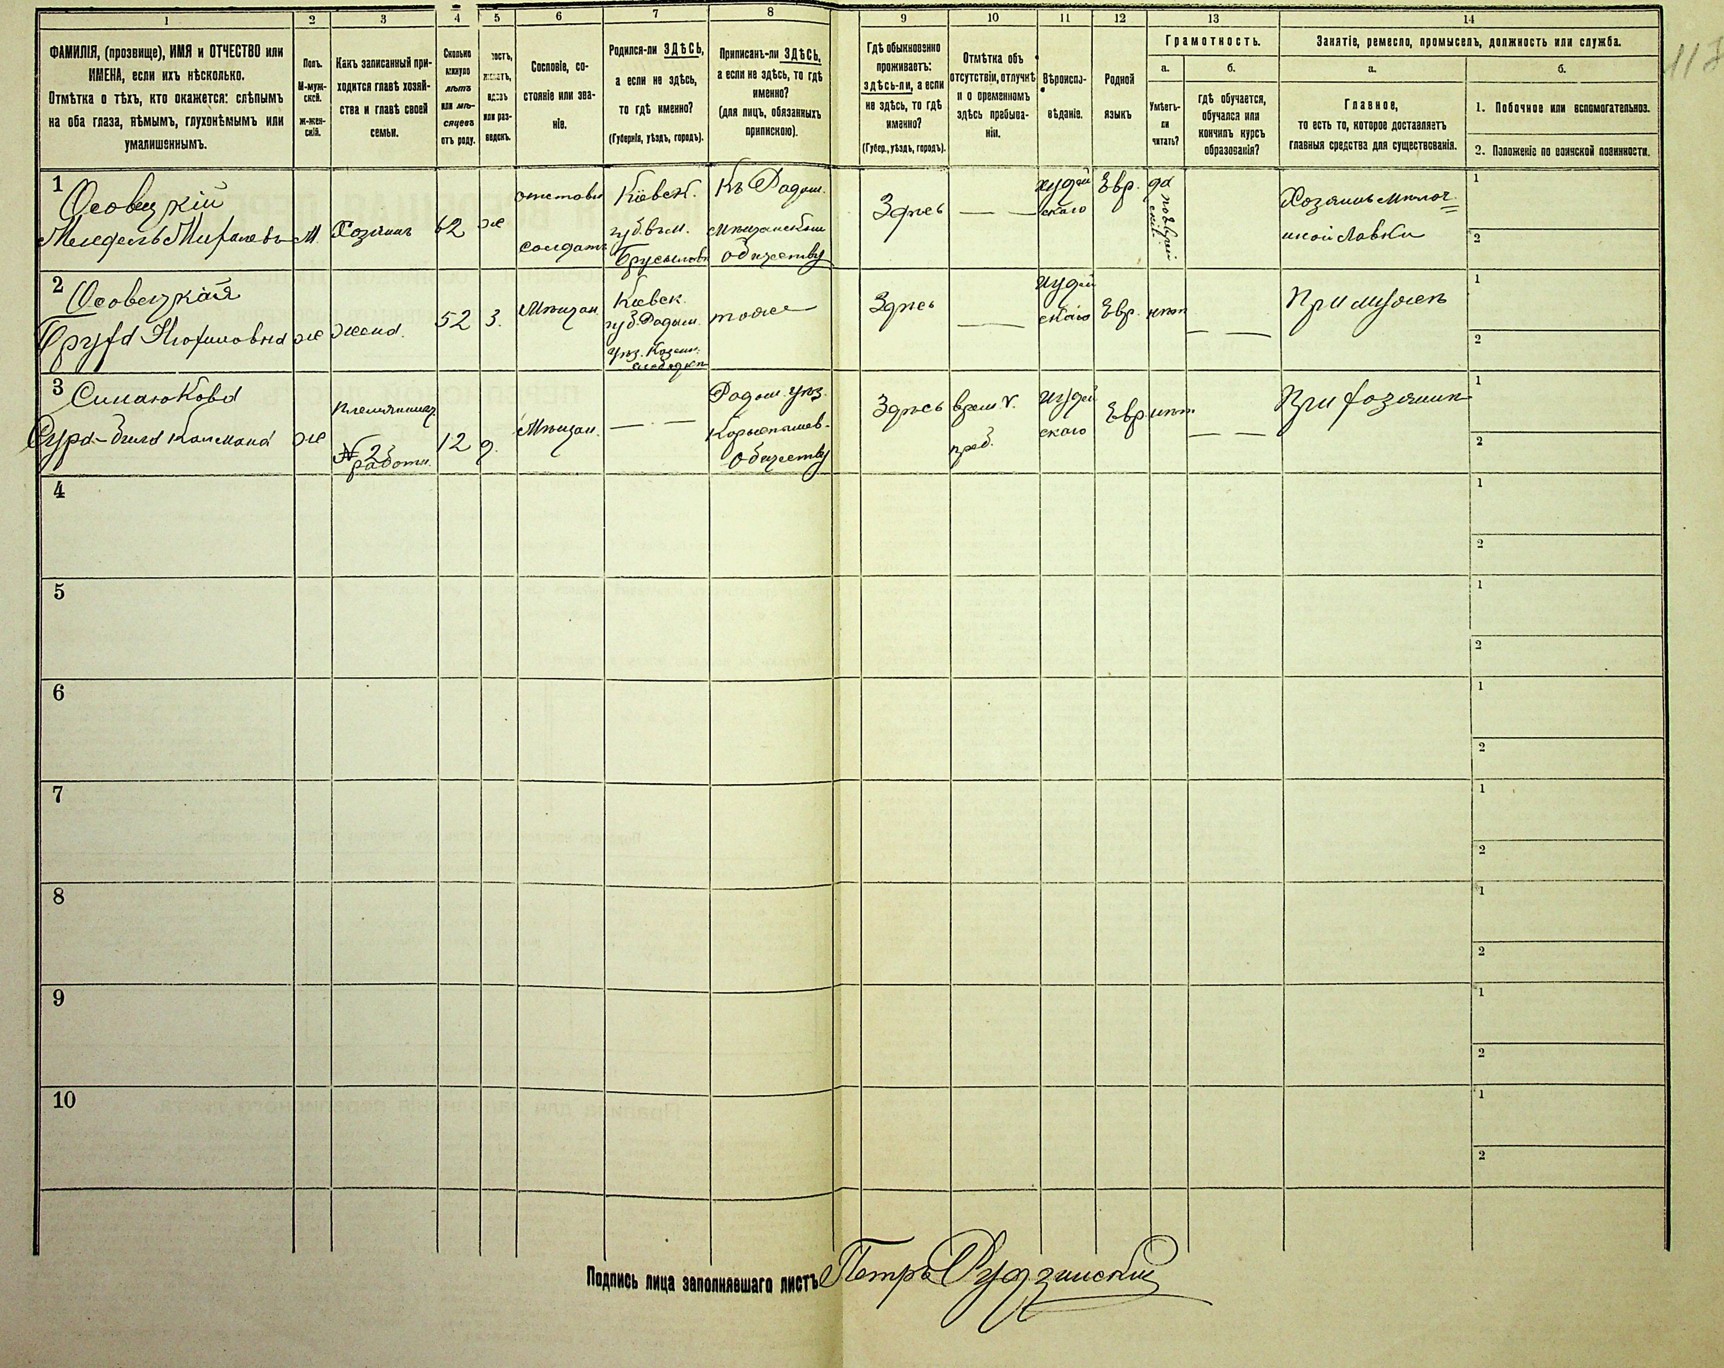 1 2 3 4 5 6 7 8 9 10 11 12 13 14
ФАМИЛІЯ, (прозвище), ИМЯ и ОТЧЕСТВО или
ИМЕНА, если ихъ нѣсколько.
Отмѣтка о тѣхъ, кто окажется: слѣпымъ
на оба глаза, нѣмымъ, глухонѣмымъ или
умалишеннымъ.
Полъ.
М-муж-
ской.
ж-жен-
скій.
Какъ записанный при-
ходится главѣ хозяй-
ства и главѣ своей
семьи.
Сколько
минуло
лѣтъ
или мѣ-
сяцевъ
отъ роду.
или раз-
веденъ.
Сословіе, со-
стояніе или зва-
ніе.
Родился-ли ЗДѢСЬ,
а если не здѣсь,
то гдѣ именно?
(Губернія, уѣздъ, городъ).
Приписанъ-ли ЗДѢСЬ,
а если не здѣсь, то гдѣ
именно?
(для лицъ, обязанныхъ
припискою).
Гдѣ обыкновенно
проживаетъ:
здѣсь-ли, а если
не здѣсь, то гдѣ
именно?
(Губер., уѣздъ, городъ).
Отмѣтка объ
отсутствіи, отлучкѣ
и о временномъ
здѣсь пребыва-
ніи.
Вѣроиспо-
вѣданіе.
Родной
языкъ
Грамотность.
а.
Умѣетъ-
ли
читать?
б.
гдѣ обучается,
обучался или
кончилъ курсъ
образованія?
Занятіе, ремесло, промыселъ, должность или служба.
а.
Главное,
то есть то, которое доставляетъ
главныя средства для существованія.
б.
1. Побочное или вспомогательное.
2. Положеніе по воинской повинности.
1
Осовецкій
М.
Хозяинъ
62
ж
отставн
солдатъ
Кіевск.
губ. въ м.
Брусилов
Къ Радом.
Мѣщанскому
обществу
Здѣсь
— —
иудей
скаго
Евр.
да
Хозяинъ мелоч
иной лавки
1
2
2
Осовецкая
ж
жена
52
з.
Мѣщан.
Кіевск.
губ. Радом.
уѣз.
тоже
Здѣсь
—
иудей
скаго
Евр.
нѣт
— —
При мужѣ
1
2
3
Симаюкова
ж
племянница
№ 2
работн.
12
д.
Мѣщан.
— —
Радом. уѣз.
обществу
Здѣсь
врем.
преб.
иудей
скаго
Евр
нѣт
— —
При хозяинѣ
1
2
4
1
2
5
1
2
6
1
2
7
1
2
8
1
2
9
1
2
10
1
2
Подпись лица заполнявшаго листъ Петръ Рудзинскій